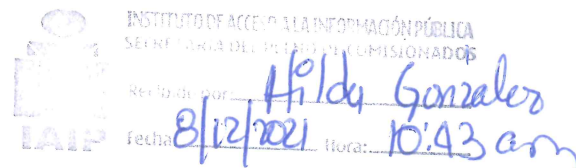 INSTITUTO DE ACCESO A LA INFORMACIÓN PÚBLICA
SECRETARIA DEL PLENO DE COMISIONADOS
Recibido por: Hilda Gonzales
IAIP
Fecha: 8/12/2021 Hora: 10:43 am